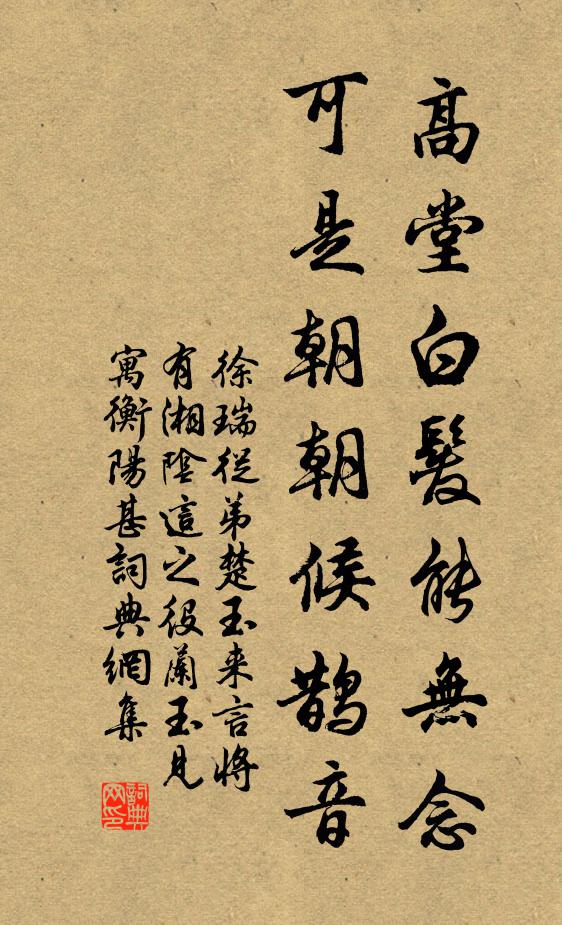 高堂白髮能無念
可是朝朝候鵲音
徐瑞從弟楚玉来言將
有湘陰這之役蘭玉見
寓衡陽甚詞典網集
詞典
网印